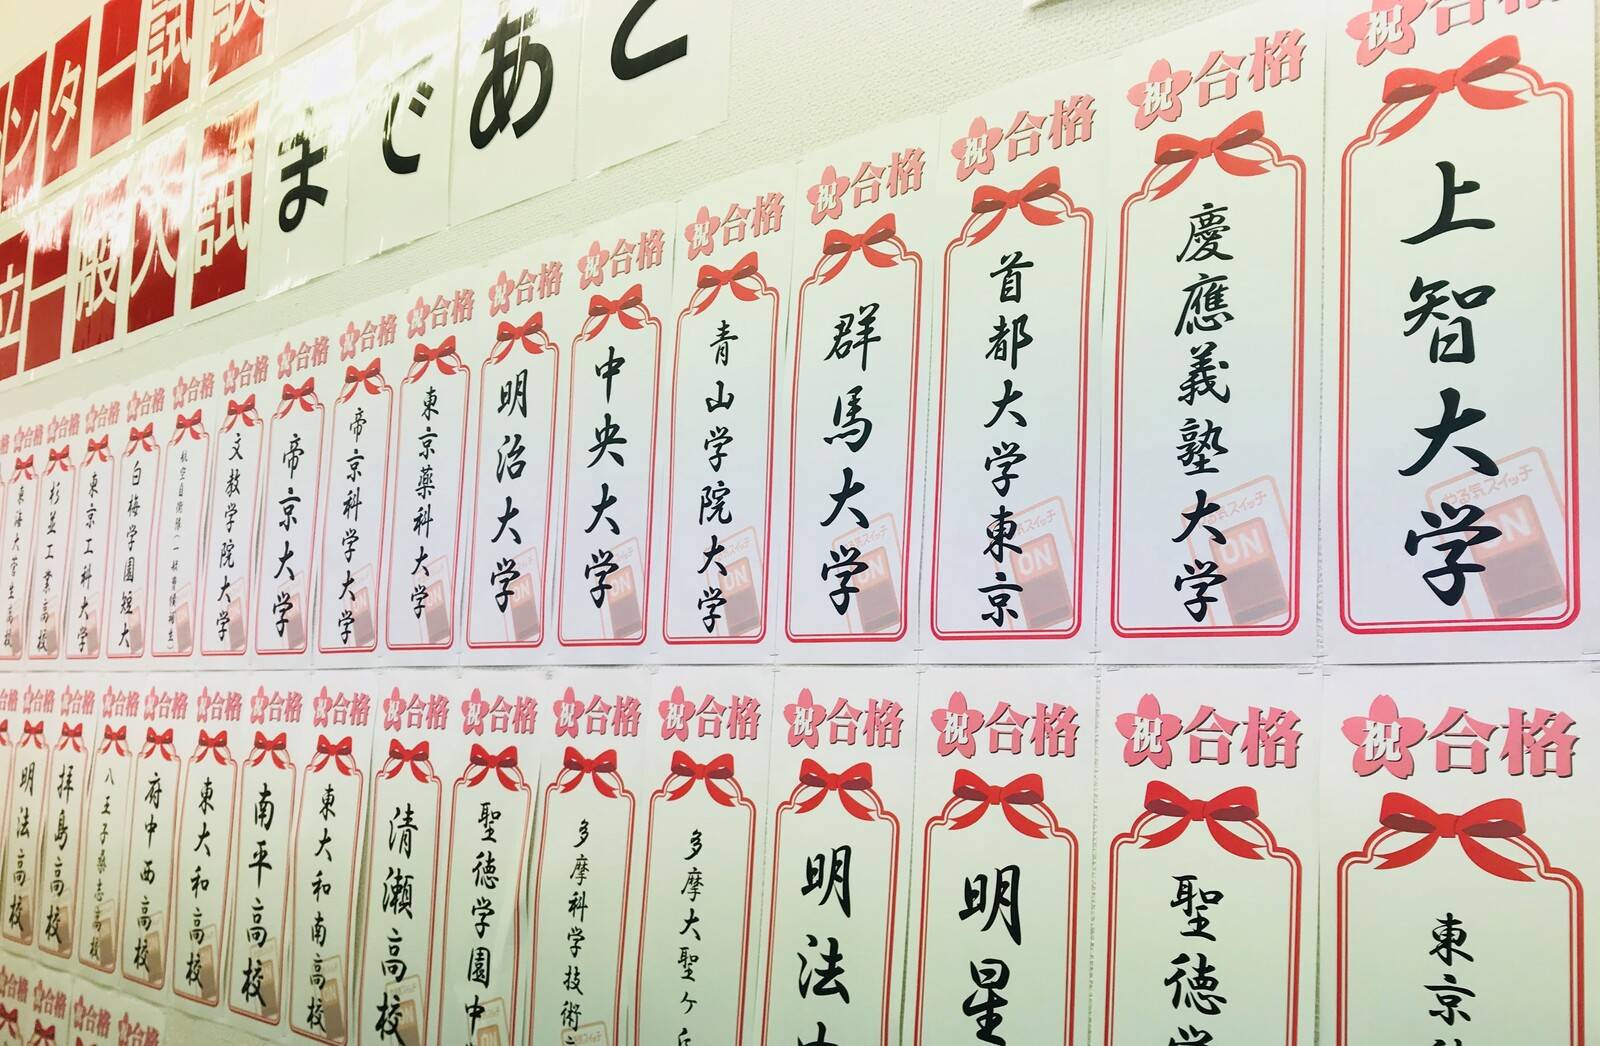 ンター試験
立一般入試
まであと
祝合格
上智大学
やる気スイッチ
ON
祝合格
慶應義塾大学
やる気スイッチ
ON
祝合格
首都大学東京
祝合格
群馬大学
ON
祝合格
青山学院大学
ON
祝合格
中央大学
ON
祝合格
明治大学
祝合格
東京薬科大学
祝合格
帝京科学大学
祝合格
帝京大学
祝合格
文教学院大学
祝合格
航空自衛隊(一般曹候補生)
祝合格
白梅学園短大
祝合格
東京工科大学
祝合格
杉並工業高校
祝合格
東海大菅生高校
祝合格
東京
祝合格
聖徳学
祝合格
明星
祝合格
明法中
祝合格
多摩大聖ヶ丘
祝合格
多摩科学技術
祝合格
聖徳学園中
祝合格
清瀬高校
祝合格
東大和南高校
祝合格
南平高校
祝合格
東大和高校
祝合格
府中西高校
祝合格
八王子桑志高校
祝合格
拝島高校
祝合格
明法高校
合格
祝合格
祝合格
祝合格